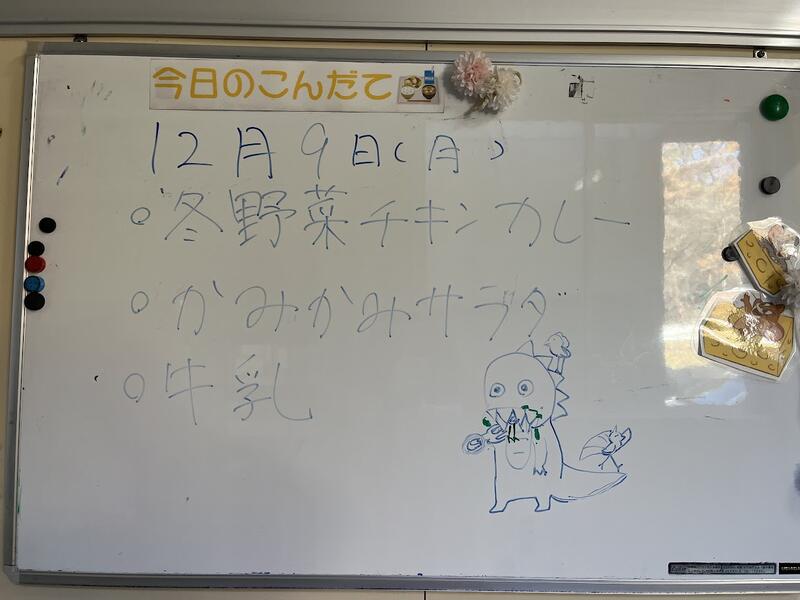 今日のこんだて
12月9日(月)
○冬野菜チキンカレー
○かみかみサラダ
○牛乳